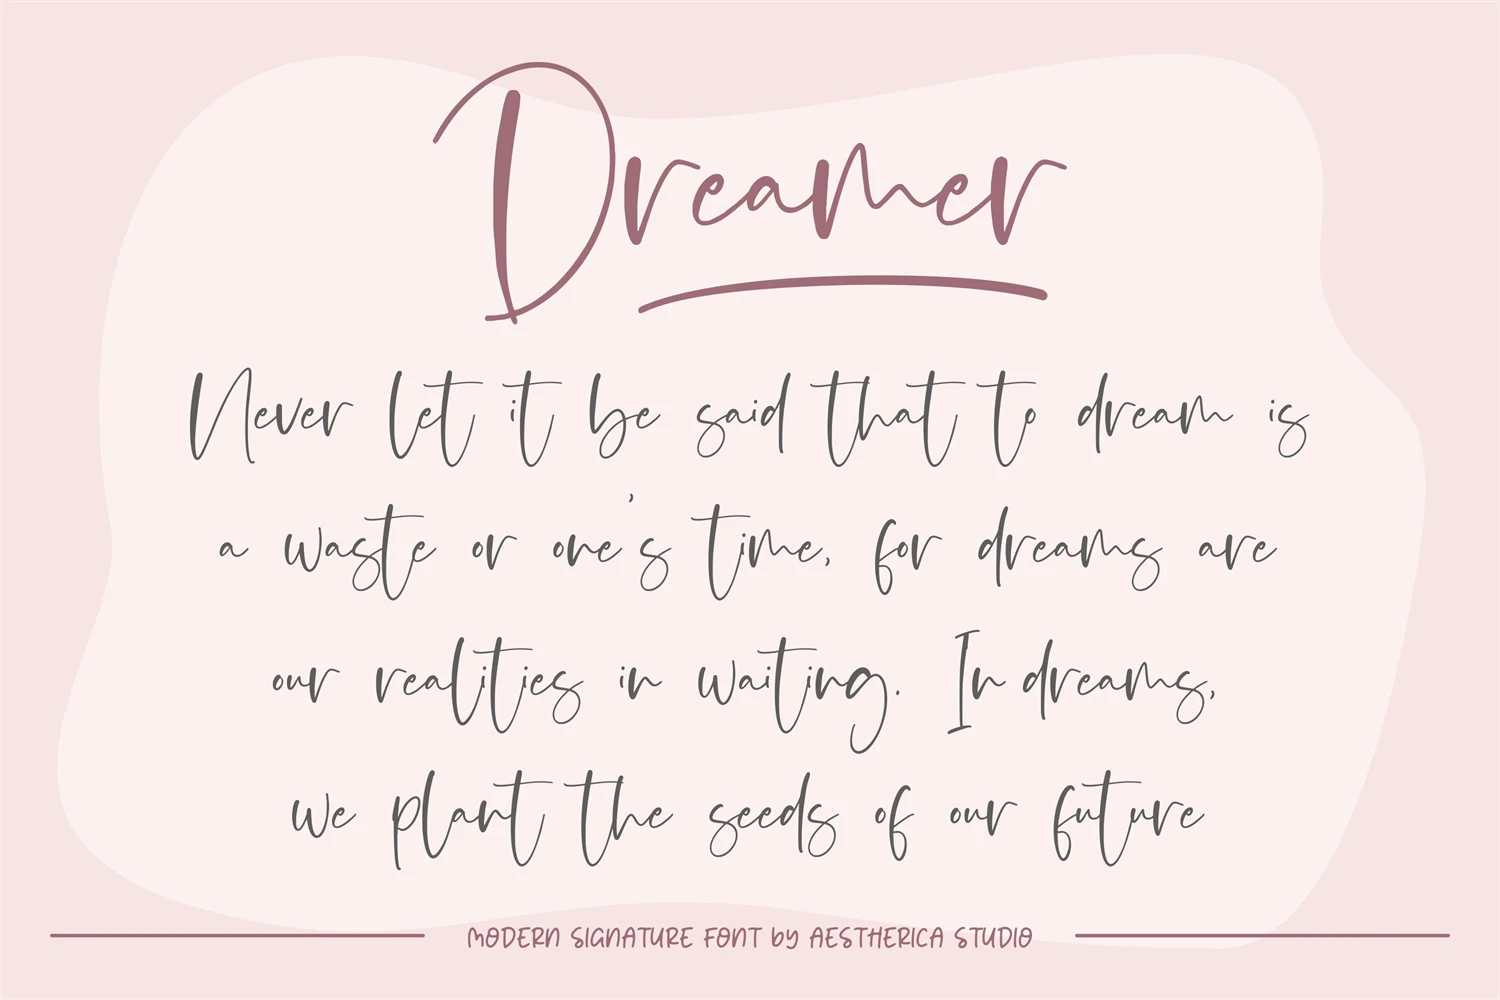 Dreamer
Never let it be said that to dream is
a waste or one's time, for dreams are
our realities in waiting. In dreams,
we plant the seeds of our future
MODERN SIGNATURE FONT by AESTHERICA STUDIO